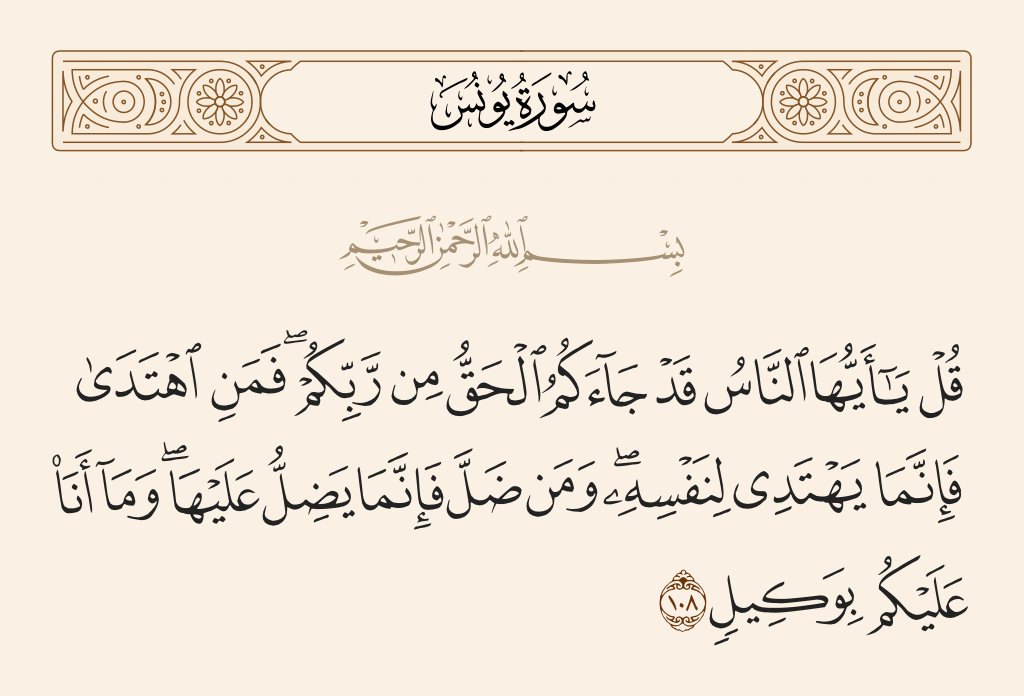 سُورَةُ يُونُسَ
بِسْمِ ٱللَّهِ ٱلرَّحْمَٰنِ ٱلرَّحِيمِ
قُلْ يَـٰٓأَيُّهَا ٱلنَّاسُ قَدْ جَآءَكُمُ ٱلْحَقُّ مِن رَّبِّكُمْ ۖ فَمَنِ ٱهْتَدَىٰ
فَإِنَّمَا يَهْتَدِى لِنَفْسِهِۦ ۖ وَمَن ضَلَّ فَإِنَّمَا يَضِلُّ عَلَيْهَا ۖ وَمَآ أَنَا۠
عَلَيْكُم بِوَكِيلٍ ١٠٨